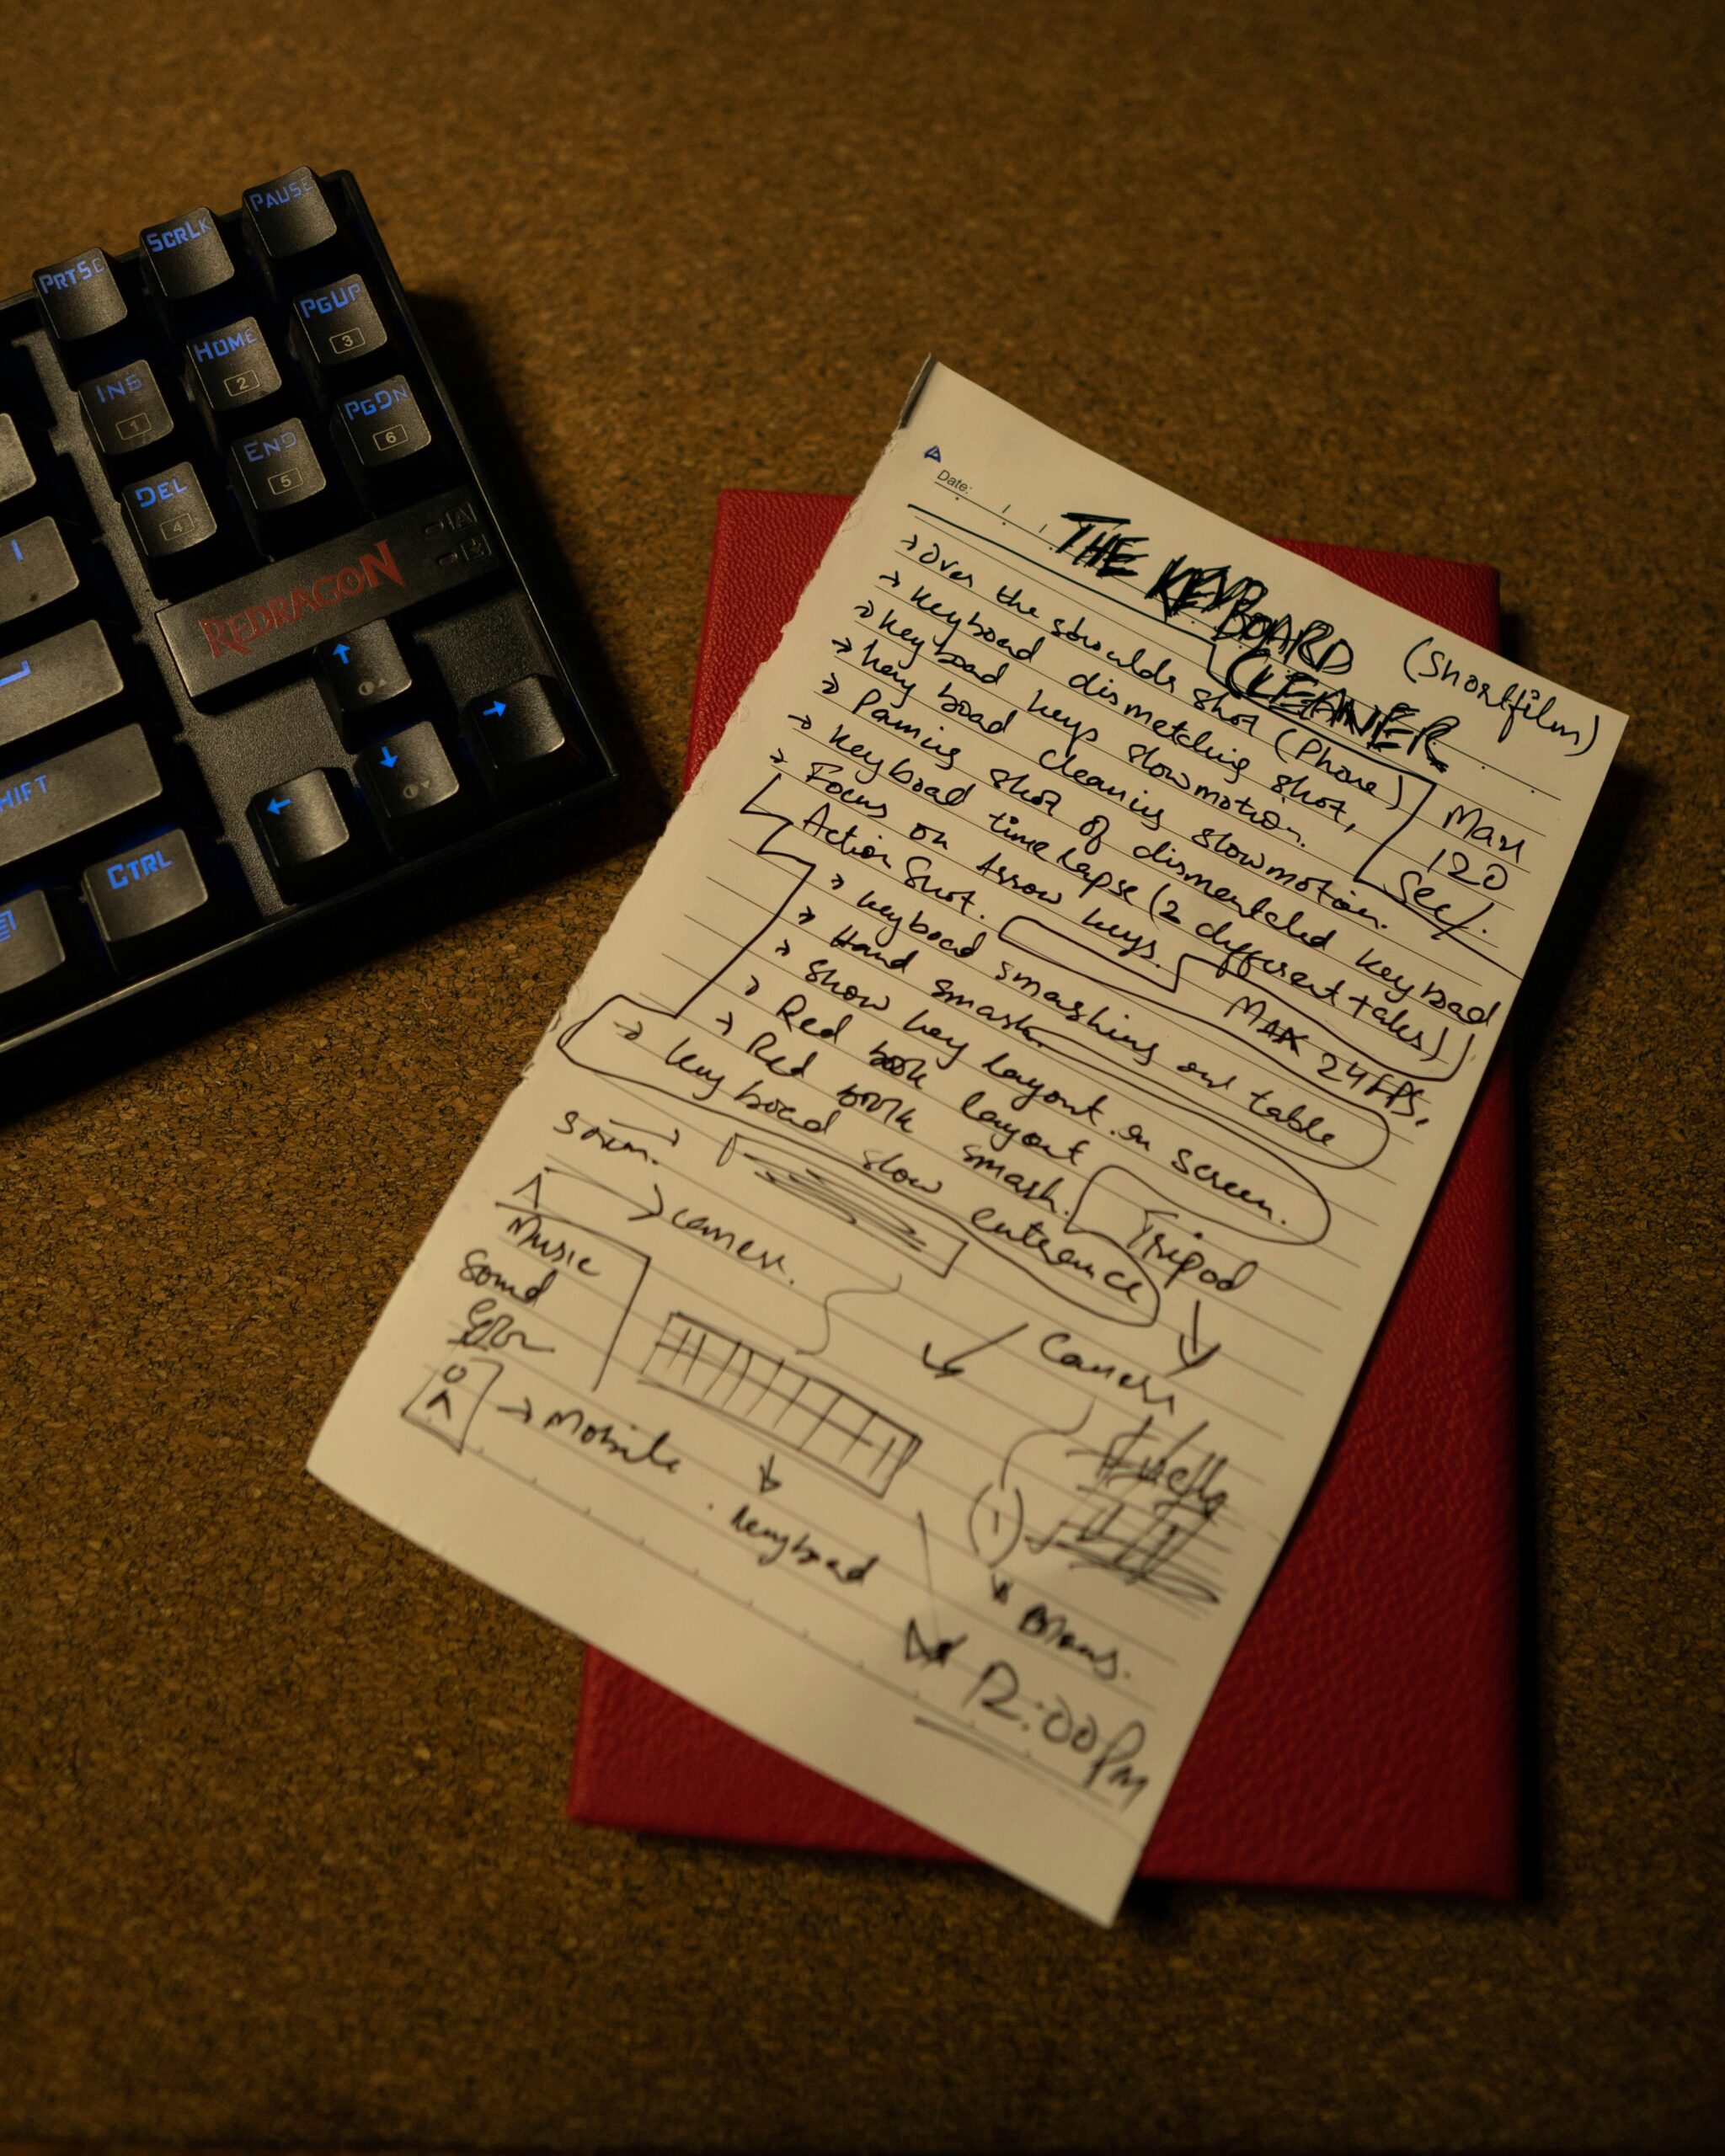 PRTSC
SCRLK
PAUSE
INS
1
HOME
2
PGUP
3
DEL
4
END
5
PGDN
6
REDRAGON
SHIFT
CTRL
Date:
THE KEYBOARD
CLEANER
(Shortfilm)
→ Over the shoulder shot (Phone)
→ Keyboad dismetching shot,
→ Key boad keys slowmotion.
→ key boad cleaning slowmotion.
→ Paning shot of dismentaled key boad
→ Key boad time lapse (2 different takes)
→ Focus on Arrow keys.
Max
120
Sec/.
Action Shot.
MAX 24 FPS,
→ keyboad smashing on table
→ Hand smash
→ Show key layout on screen.
→ Red book layout
→ Red book smash.
→ Key boad slow entrence
Tripod
Camera
→ camera.
Music
Sound
→ Mobile
keyboad
(1)
12:00 Pm